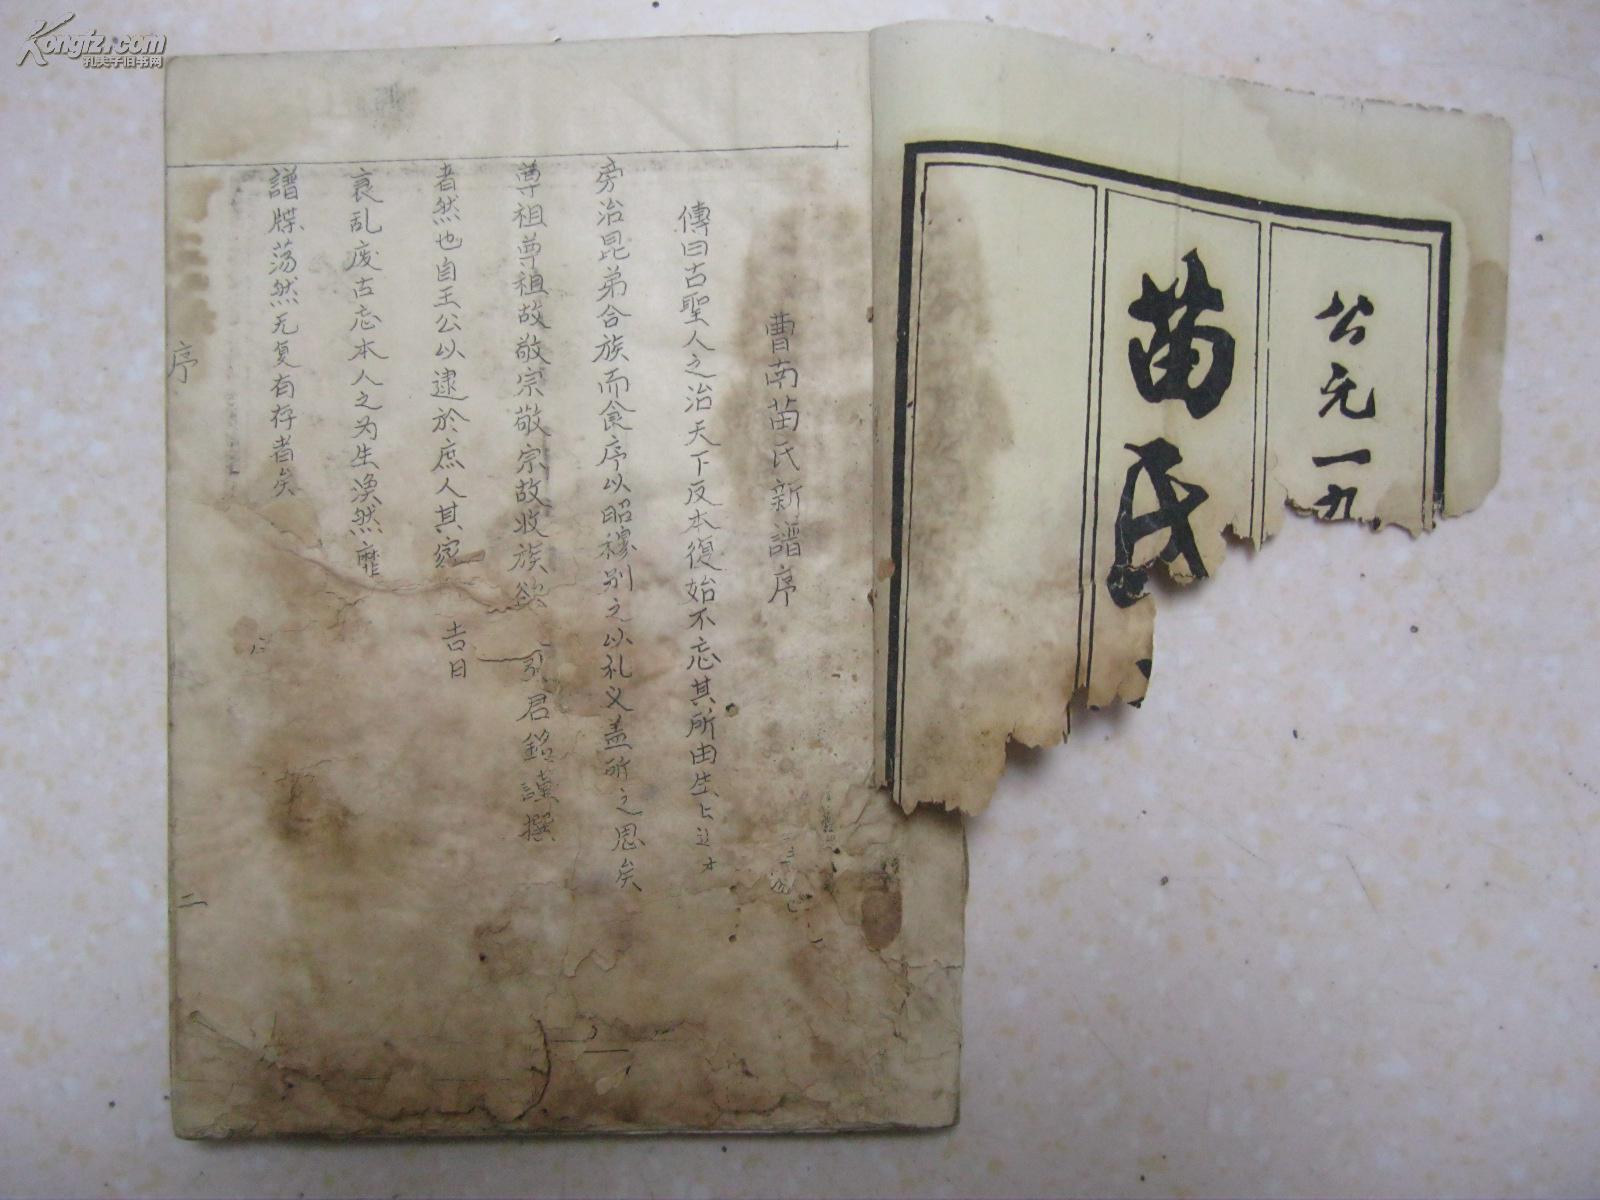 Kongfz.com
孔夫子旧书网
公元一九
苗氏
曹南苗氏新譜序
傳曰古聖人之治天下反本復始不忘其所由生上
旁治昆弟合族而食序以昭穆别之以礼义盖所之思矣
尊祖尊祖故敬宗敬宗故收族欲
君銘謹撰
者然也自王公以逮於庶人其家
吉日
衰乱废古忘本人之为生渙然靡
譜牒荡然无复有存者矣
序
二